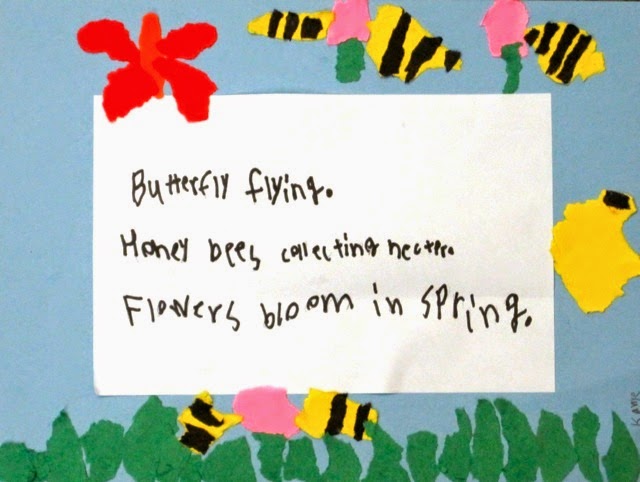 Butterfly flying.
Honey bees colecting necter.
Flowers bloom in spring.